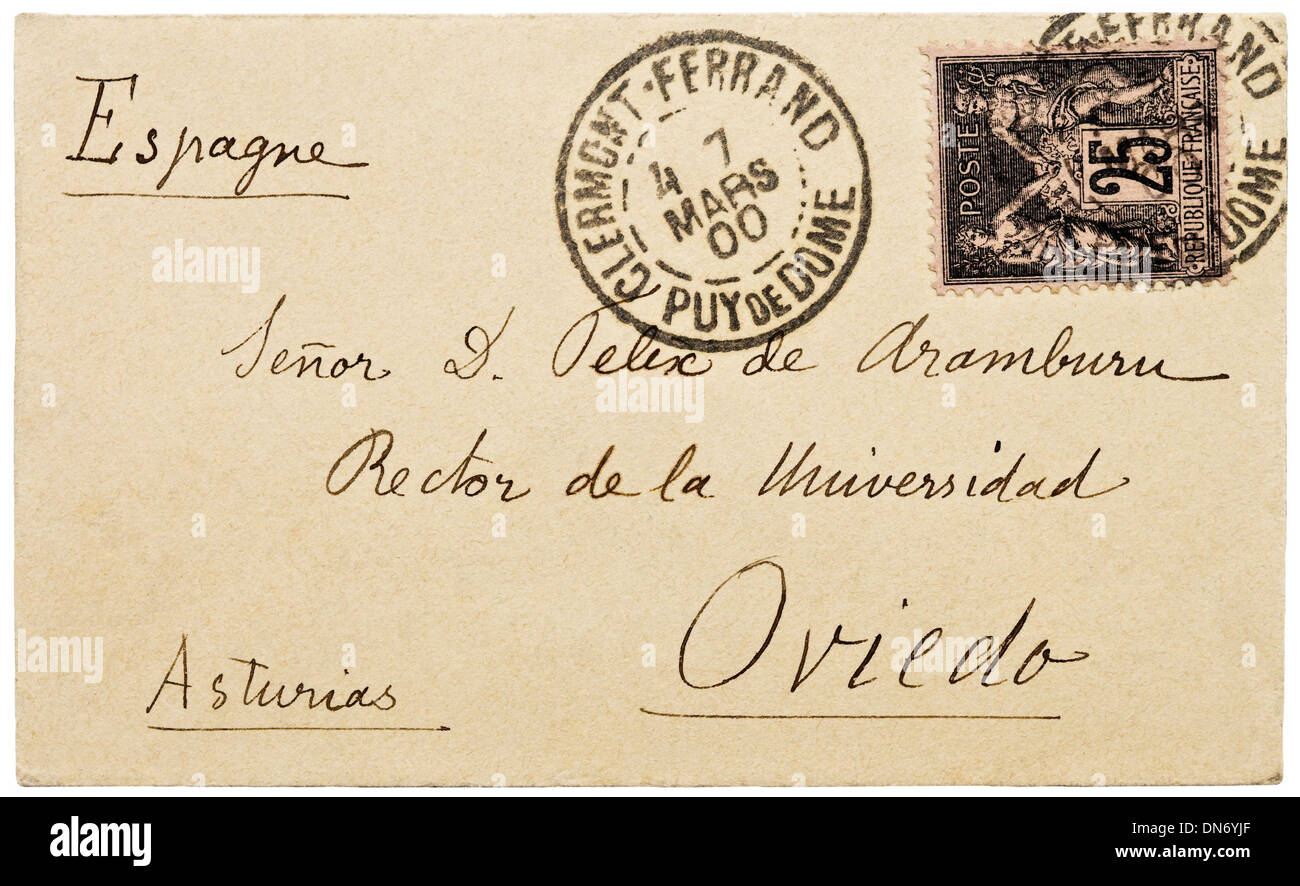 Espagne
CLERMONT-FERRAND
4 7
MARS
00
PUY DE DOME
FERRAND
DOME
POSTE
25
REPUBLIQUE FRANÇAISE
Señor D. Felix de Aramburu
Rector de la Universidad
Oviedo
Asturias
alamy
alamy
Image ID: DN6YJF
www.alamy.com